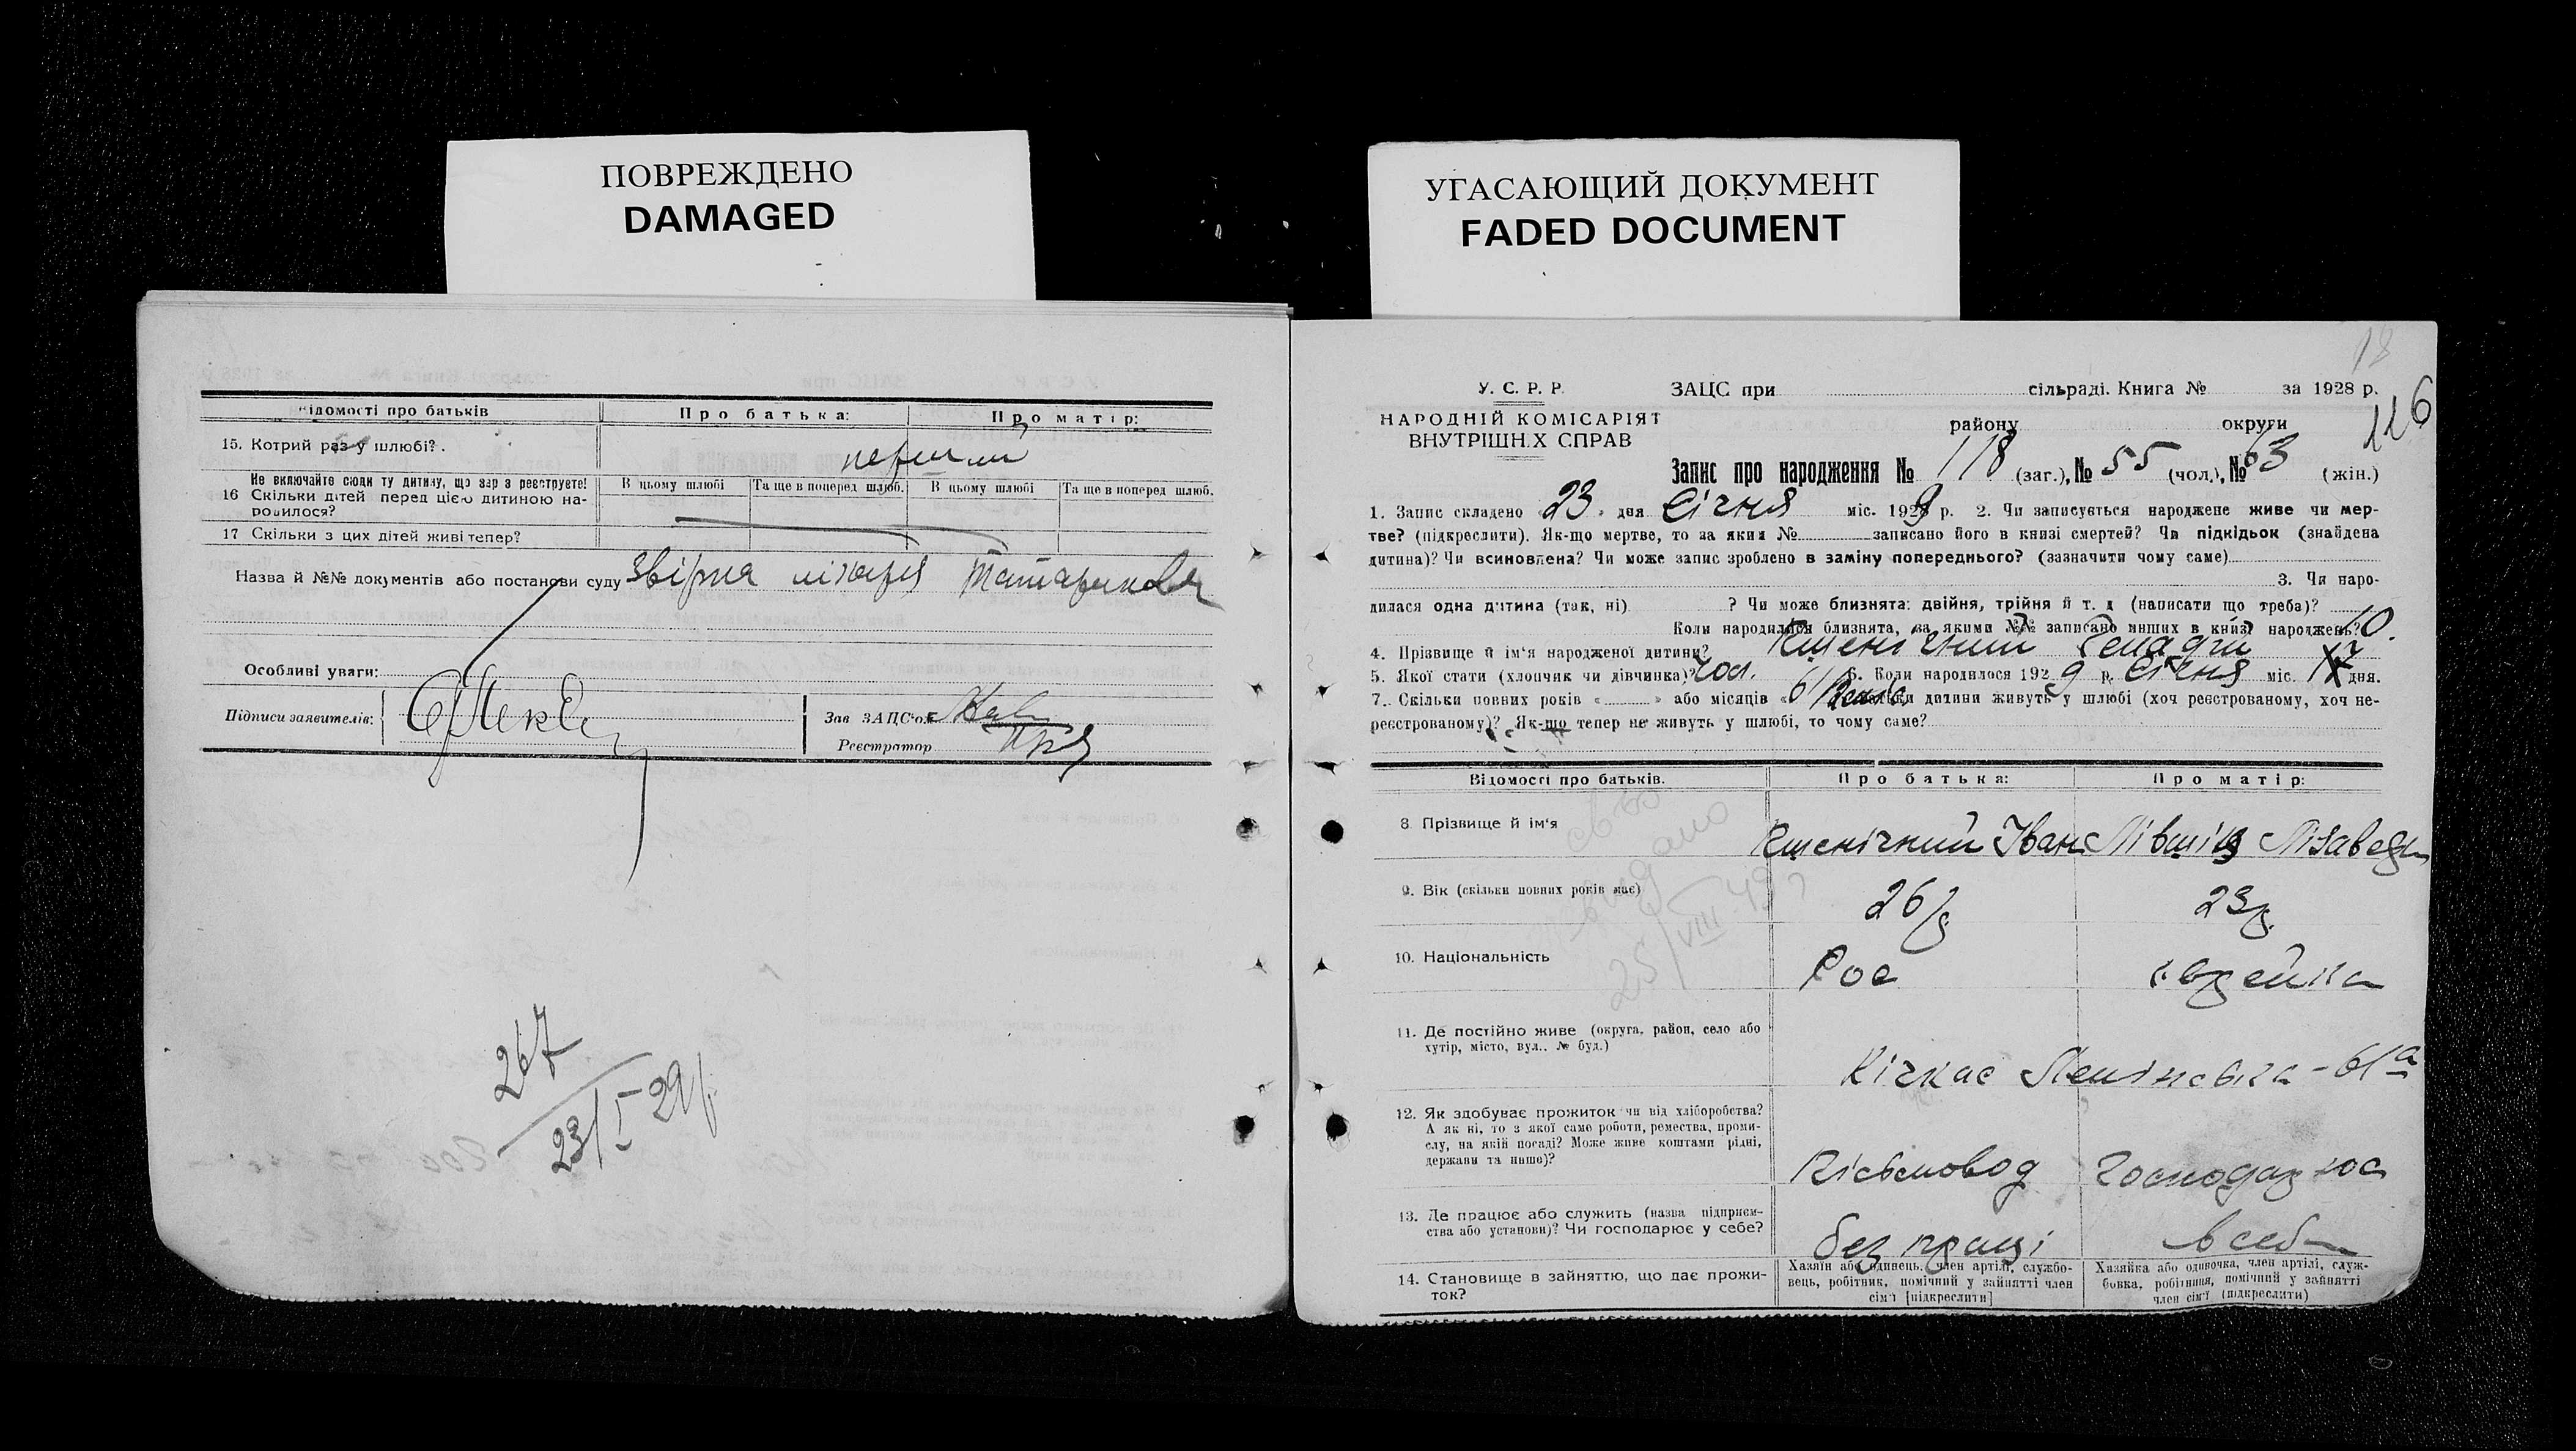 ПОВРЕЖДЕНО
DAMAGED
УГАСАЮЩИЙ ДОКУМЕНТ
FADED DOCUMENT
відомості про батьків
Про батька:
Про матір:
15. Котрий раз у шлюбі?.
перший
Не включайте сюди ту дитину, що зараз реєструєте!
16 Скільки дітей перед цією дитиною на-
родилося?
В цьому шлюбі
Та ще в поперед шлюб.
В цьому шлюбі
Та ще в поперед шлюб.
17 Скільки з цих дітей живі тепер?
Назва й №№ документів або постанови суду
Особливі уваги:
Підписи заявителів:
Зав ЗАЦС'ом
Реєстратор
267
23/I 29 р
18
116
У. С. Р. Р.
НАРОДНІЙ КОМІСАРІЯТ
ВНУТРІШНІХ СПРАВ
ЗАЦС при сільраді. Книга № за 1928 р.
району округи
Запис про народження № 118 (заг.), № 55 (чол.), № 63 (жін.)
1. Запис складено «23» дня Січня міс. 1929 р. 2. Чи записується народжене живе чи мер-
тве? (підкреслити). Як-що мертве, то за яким № записано його в книзі смертей? Чи підкідьок (знайдена
дитина)? Чи всиновлена? Чи може запис зроблено в заміну попереднього? (зазначити чому саме)
3. Чи наро-
дилася одна дитина (так, ні) ? Чи може близнята: двійня, трійня й т. д (написати що треба)?
Коли народилися близнята, за якими №№ записано инших в книзі народжень?
4. Прізвище й ім'я народженої дитини? Пшенічний Генадій
5. Якої статі (хлопчик чи дівчинка)? чол. 6. Коли народилося 1929 р. Січня міс. 17 дня.
7. Скільки повних років « » або місяців « батьки дитини живуть у шлюбі (хоч реєстрованому, хоч не-
реєстрованому)? Як-що тепер не живуть у шлюбі, то чому саме?
Відомості про батьків.
Про батька:
Про матір:
8. Прізвище й ім'я
Пшенічний Іван
Лівшіц Лізавета
9. Вік (скільки повних років має)
26 р
23 р
видано
25/VIII 49 г
10. Національність
Рос
єврейка
11. Де постійно живе (округа, район, село або
хутір, місто, вул., № буд.)
Кічкас Ленінська - 61а
12. Як здобуває прожиток чи від хліборобства?
А як ні, то з якої саме роботи, ремества, проми-
слу, на якій посаді? Може живе коштами рідні,
держави та инше)?
Письмовод
Господарює
13. Де працює або служить (назва підприєм-
ства або установи)? Чи господарює у себе?
без праці
в себе
14. Становище в зайняттю, що дає прожи-
ток?
Хазяїн або одинець, член артілі, службо-
вець, робітник, помічний у зайнятті член
сім'ї [підкреслити]
Хазяйка або одиночка, член артілі, служ-
бовка, робітниця, помічний у зайнятті
член сім'ї (підкреслити)